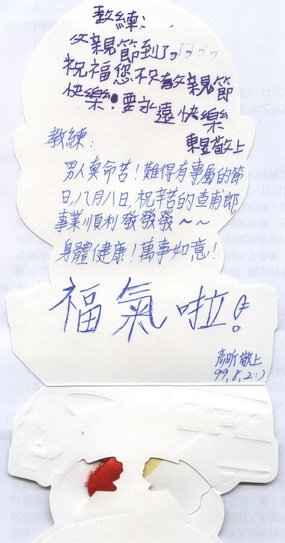 教練:
父親節到了ㄋㄋㄋㄋ
祝福您父親節
快樂!要永遠快樂
東昱敬上
教練:
男人真命苦!難得有專屬的節
日,八月八日,祝辛苦的查甫郎
事業順利發發發~~
身體健康!萬事如意!
福氣啦!
敬上
99.8.2:)